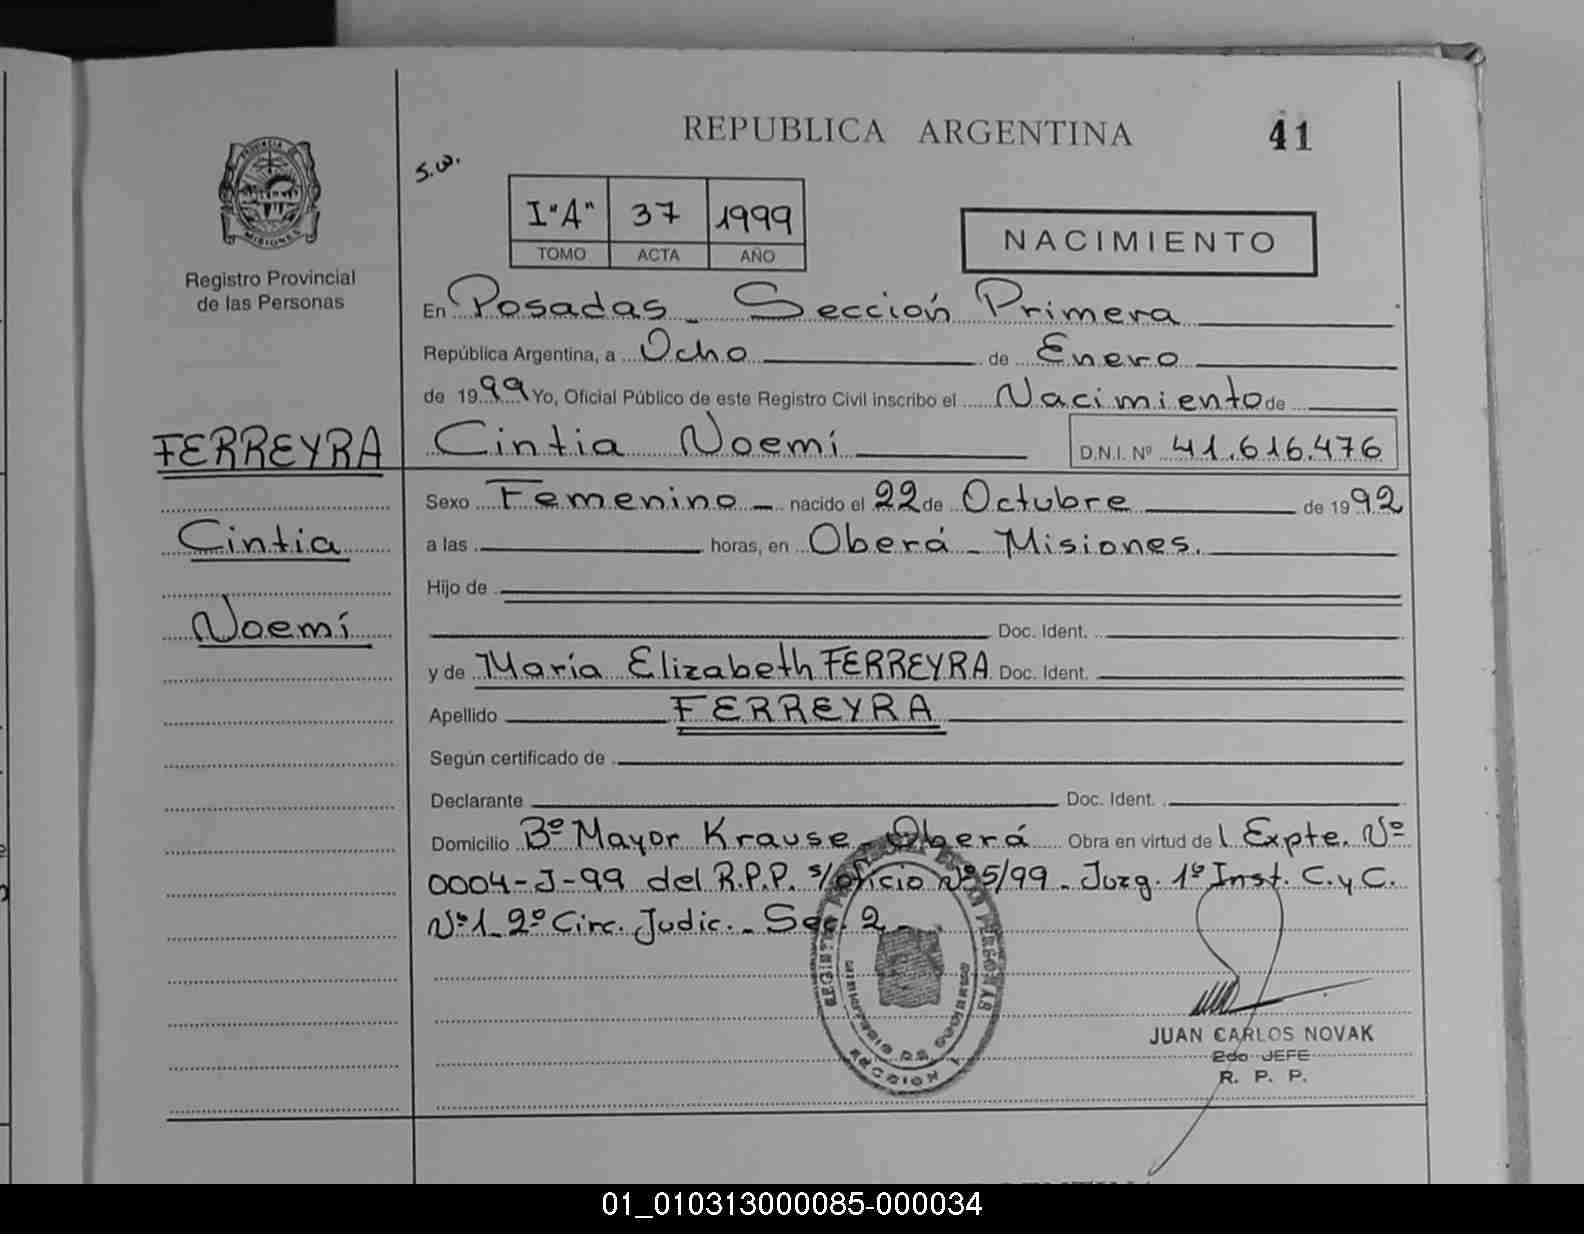 REPUBLICA ARGENTINA
41
s.w.
I "A" 37 1999
TOMO ACTA AÑO
NACIMIENTO
PROVINCIA DE
MISIONES
Registro Provincial
de las Personas
FERREYRA
Cintia
Noemí
En Posadas - Sección Primera
República Argentina, a Ocho de Enero
de 1999 Yo, Oficial Público de este Registro Civil inscribo el Nacimiento de
Cintia Noemí D.N.I. Nº 41.616.476
Sexo Femenino - nacido el 22 de Octubre de 1992
a las horas, en Oberá - Misiones.
Hijo de
Doc. Ident.
y de María Elizabeth FERREYRA Doc. Ident.
Apellido FERREYRA
Según certificado de
Declarante Doc. Ident.
Domicilio Bº Mayor Krause - Oberá Obra en virtud de l Expte. Nº
0004-J-99 del R.P.P. s/oficio Nº 5/99 - Juzg. 1º Inst. C. y C.
Nº 1 - 2º Circ. Judic. - Sec. 2 -
SECCION 1
JUAN CARLOS NOVAK
2do JEFE
R. P. P.
01_010313000085-000034